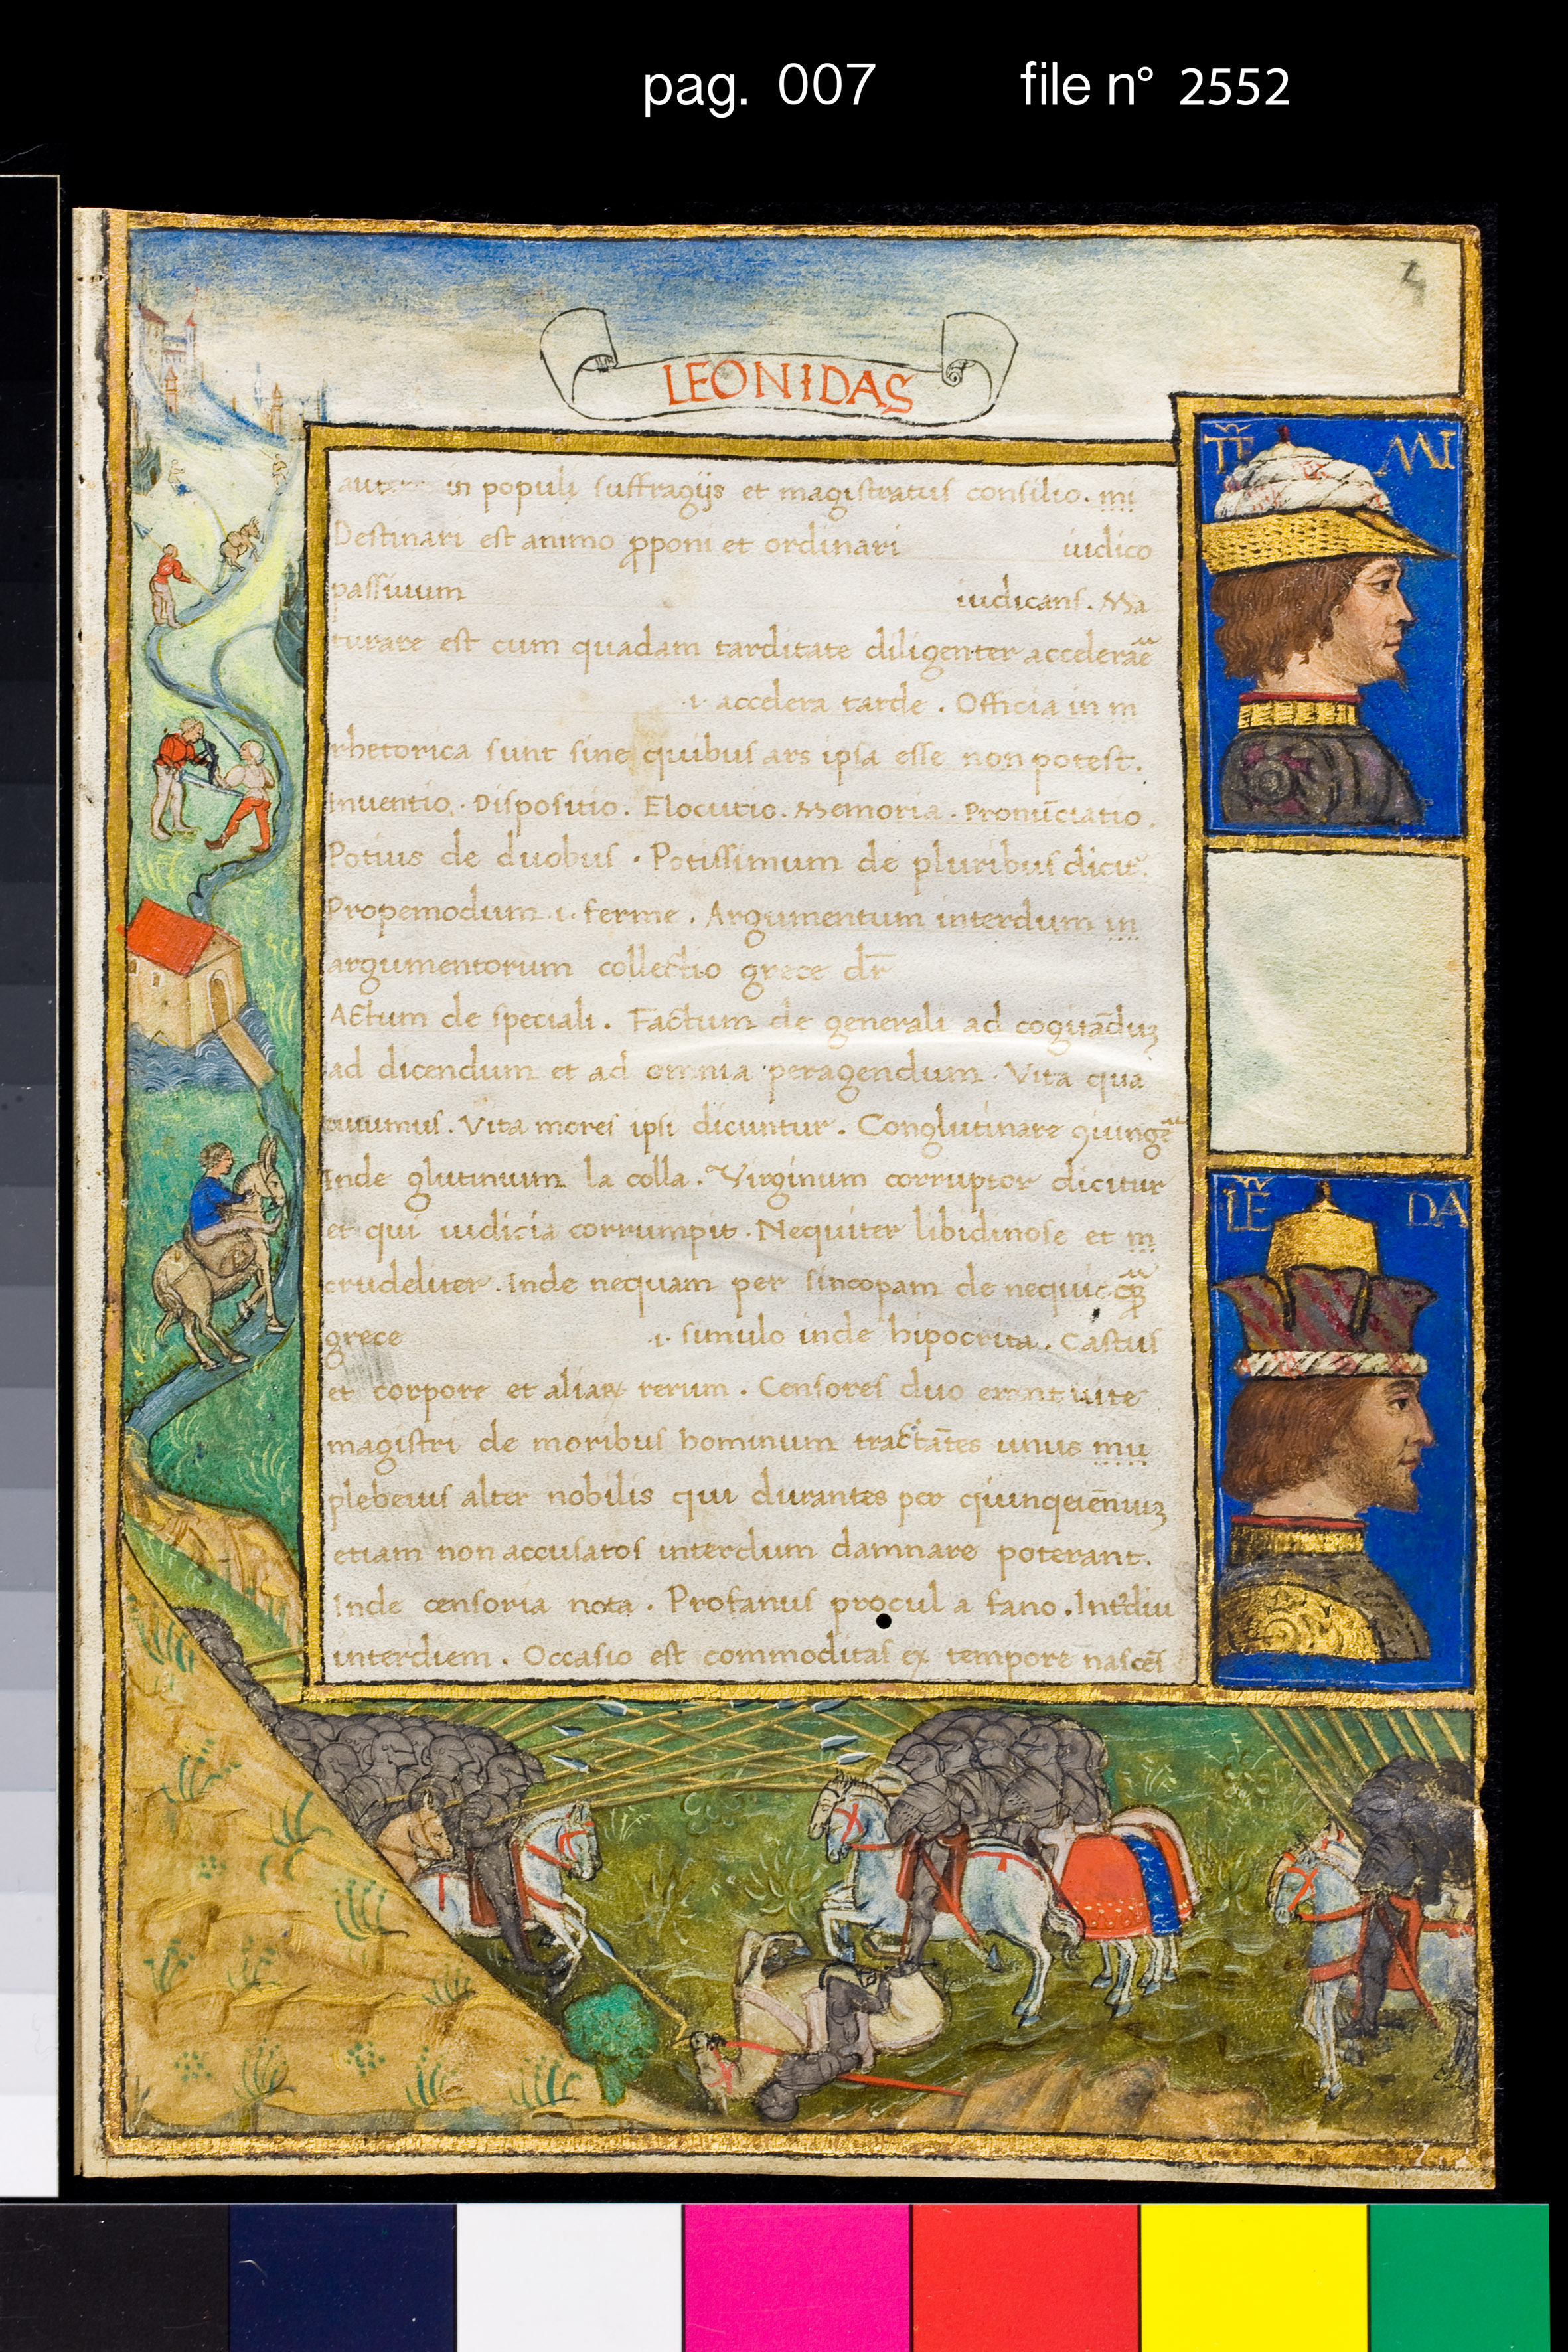 pag. 007 file n° 2552
4
LEONIDAS
TR̃E MI
in populi suffragijs et magistratus consilio. mi
Destinari est animo ꝓponi et ordinari iudico
passiuum iudicans. Ma
turare est cum quadam tarditate diligenter accelerare
.i. accelera tarde. Officia in m
rhetorica sunt sine quibus ars ipsa esse non potest.
Inuentio. Dispositio. Elocutio. Memoria. Pronūciatio.
Potius de duobus. Potissimum de pluribus dicit᷑.
Propemodum .i. ferme. Argumentum interdum in
argumentorum collectio grece dr̄
Actum de speciali. Factum de generali ad cogitāduꝫ
ad dicendum et ad omnia peragendum. Vita qua
uiuimus. Vita mores ipsi dicuntur. Conglutinare ꝯiunge
Inde glutinium la colla. Virginum corruptor dicitur
et qui iudicia corrumpit. Nequiter libidinose et m
crudeliter. Inde nequam per sincopam de nequic
grece .i. simulo inde hipocrita. Castus
et corpore et aliaꝝ rerum. Censores duo erant uite
magistri de moribus hominum tractātes unus mu
plebeius alter nobilis qui durantes per qiunqueēniuꝫ
etiam non accusatos interdum damnare poterant.
Inde censoria nota. Profanus procul a fano. Int᷑diu
interdiem. Occasio est commoditas ex tempore nascēs
LE DA